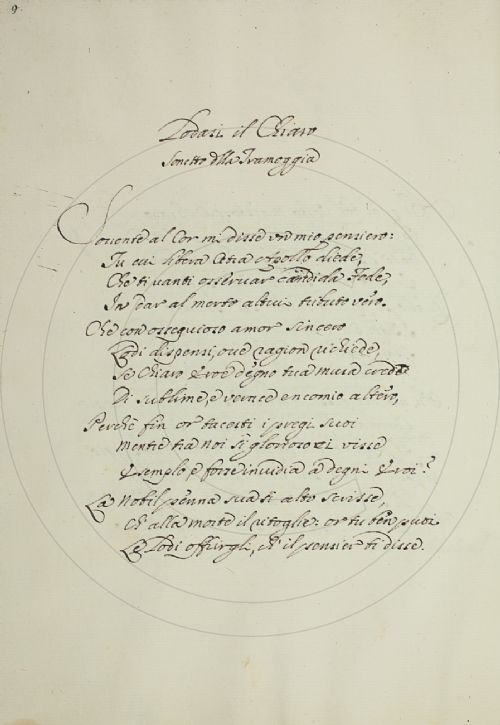 9.
Lodasi il Chiaro
Sonetto della Trameggia
Sovente al Cor mi disse un mio pensiero:
Tu cui libera Cetra Apollo diede,
Che ti vanti osservar candida Fede,
In dar al merto altrui tributo vero.
Che con ossequioso amor sincero
Lodi dispensi, ove ragion richiede,
Se Chiaro Eroe degno tua musa crede
Di sublime, e verace encomio altero,
Perchè fin or tacesti i pregi suoi
Mentre tra noi sì glorioso ei visse
Esempio, e forse invidia a degni Eroi?
La Nobil penna sua sì alto scrisse,
Ch' alla morte il ritoglie: or tu ben puoi
Le Lodi offrirgli, ch' il pensier ti disse.